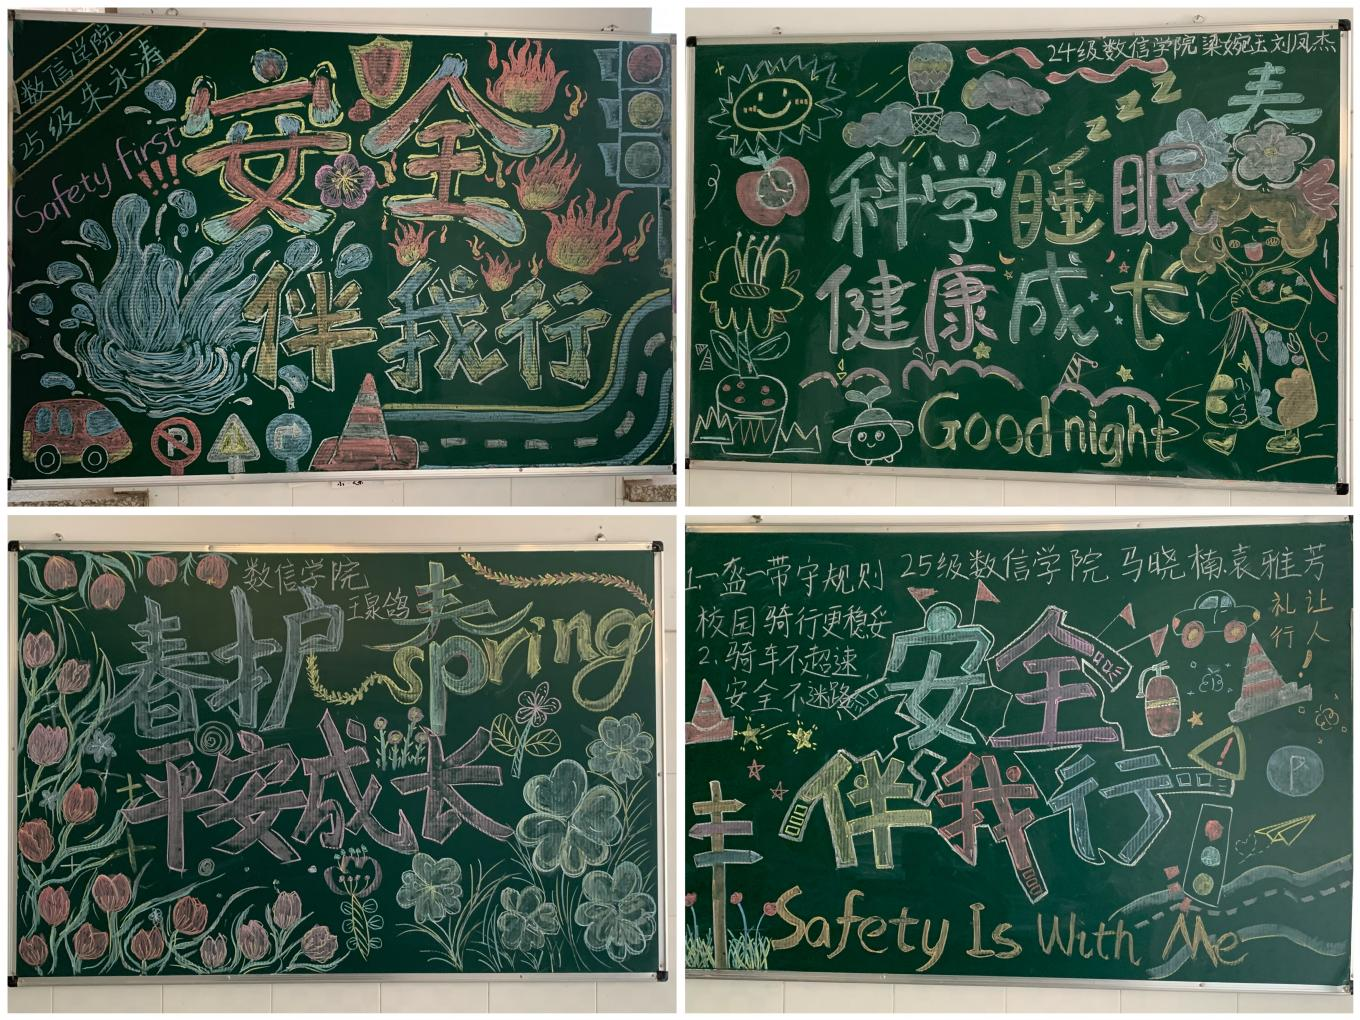 数信学院
25级 朱永涛
Safety first!!!
安全
伴我行
24级数信学院 梁婉玉 刘凤杰
zzz
春
科学睡眠
健康成长
Good night
数信学院
王泉鸽
春护
春
spring
平安成长
25级数信学院 马晓楠 袁雅芳
1.一盔一带守规则
校园骑行更稳妥
2.骑车不超速,
安全不迷路
礼让
行人
!
安全
伴我行
P
Safety Is With Me